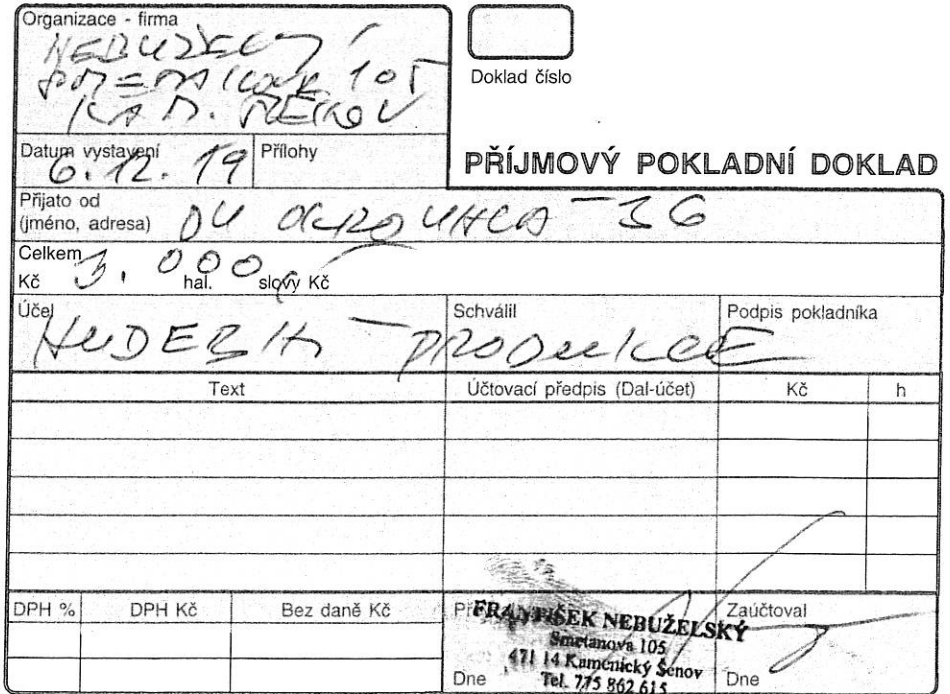 Organizace - firma
NEBUŽELSKÝ
105
KAM. ŠENOV
Doklad číslo
Datum vystavení
6.12. 19
Přílohy
PŘÍJMOVÝ POKLADNÍ DOKLAD
Přijato od
(jméno, adresa)
OU OKROUHLÁ - 36
Celkem
Kč 3. 000, hal. slovy Kč
Účel Schválil Podpis pokladníka
HUDEBNÍ PRODUKCE
Text Účtovací předpis (Dal-účet) Kč h
DPH % DPH Kč Bez daně Kč Zaúčtoval
FRANTIŠEK NEBUŽELSKÝ
Smetanova 105
471 14 Kamenický Šenov
Tel. 775 862 615
Dne Dne